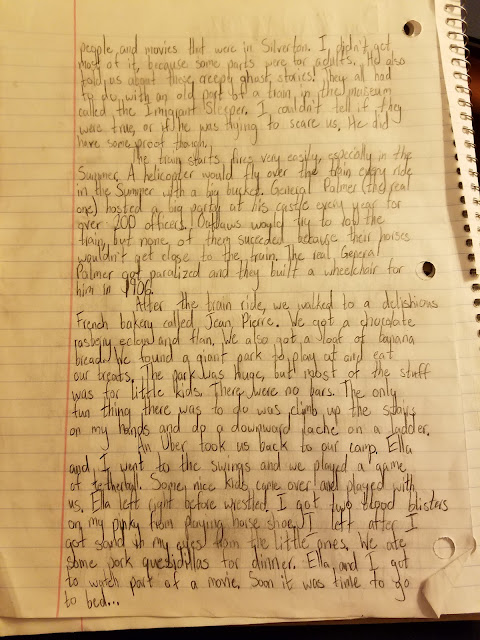 people, and movies that were in Silverton. I didn't get
most of it, because some parts were for adults. He also
told us about these creepy ghost stories! They all had
to do with an old part of a train in the museum
called the Imigrant Sleeper. I couldn't tell if they
were true, or if he was trying to scare us. He did
have some proof though.
The train starts fires very easily, especially in the
Summer. A helicopter would fly over the train every ride
in the Summer with a big bucket. General Palmer (the real
one) hosted a big party at his castle every year for
over 200 officers. Outlaws would try to rob the
train, but none of them succeded because their horses
wouldn't get close to the train. The real General
Palmer got paralized and they built a wheelchair for
him in 1906.
After the train ride, we walked to a delishious
French bakery called, Jean, Pierre. We got a chocolate
rasbery eclogs and flan. We also got a loaf of banana
bread. We found a giant park to play at and eat
our treats. The park was huge, but most of the stuff
was for little kids. There were no bars. The only
fun thing there was to do was climb up the
on my hands and do a downward on a ladder.
An Uber took us back to our camp. Ella
and I went to the swings and we played a game
of tetherball. Some nice kids came over and played with
us. Ella left right before wrestled. I got two blood blisters
on my pinky from playing horse shoe. I left after I
got sand in my eyes from the little ones. We ate
some pork quesidillas for dinner. Ella, and I got
to watch part of a movie. Soon it was time to go
to bed...